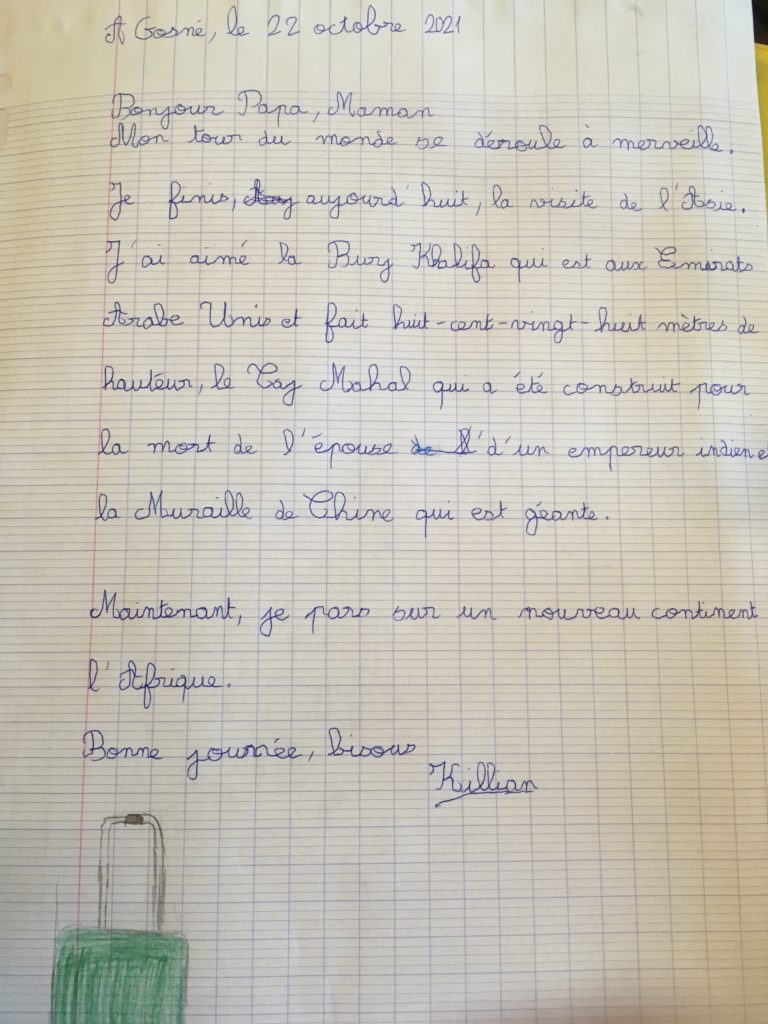 A Gosné, le 22 octobre 2021
Bonjour Papa, Maman
Mon tour du monde se déroule à merveille.
Je finis, aujourd'huit, la visite de l'Asie.
J'ai aimé la Burj Khalifa qui est aux Emirats
Arabe Unis et fait huit-cent-vingt-huit mètres de
hauteur, le Taj Mahal qui a été construit pour
la mort de l'épouse d'un empereur indien e
la Muraille de Chine qui est géante.
Maintenant, je pars sur un nouveau continent
l'Afrique.
Bonne journée, bisous
Killian